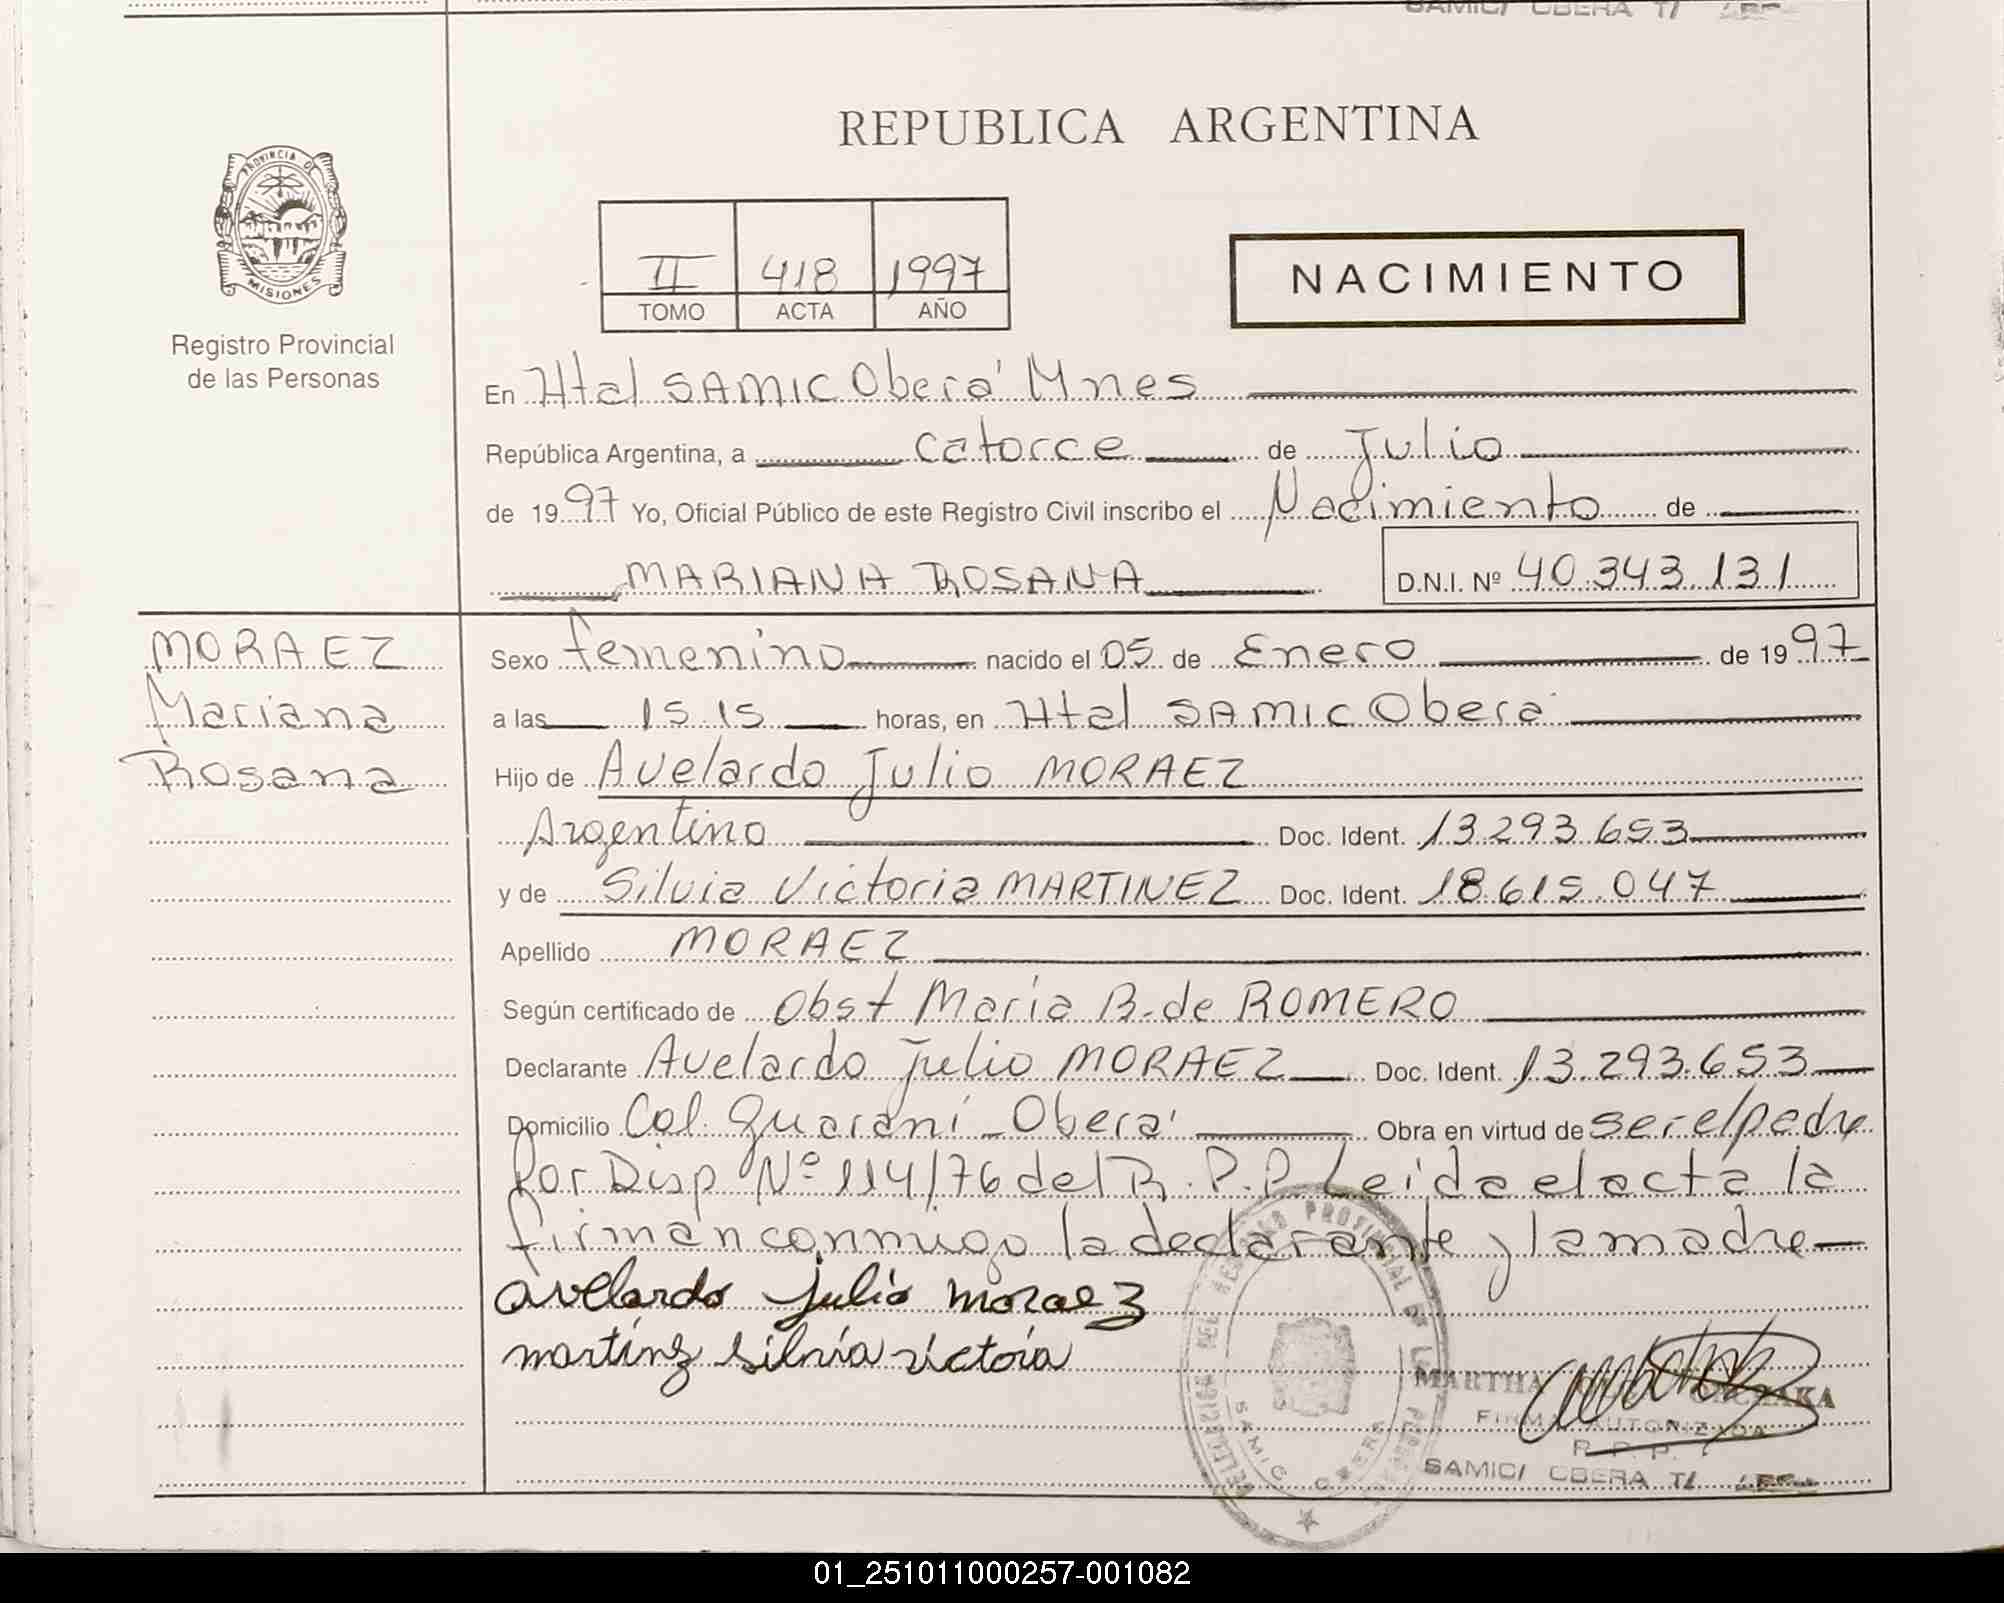 SAMIC/ OBERA T/
REPUBLICA ARGENTINA
PROVINCIA DE
MISIONES
II 418 1997
TOMO ACTA AÑO
NACIMIENTO
Registro Provincial
de las Personas
En Htal SAMIC Oberá Mnes
República Argentina, a catorce de Julio
de 1997 Yo, Oficial Público de este Registro Civil inscribo el Nacimiento de
MARIANA ROSANA D.N.I. Nº 40.343.131
MORAEZ
Mariana
Rosana
Sexo femenino nacido el 05 de Enero de 1997
a las 15.15 horas, en Htal SAMIC Oberá
Hijo de Avelardo Julio MORAEZ
Argentino Doc. Ident. 13.293.653
y de Silvia Victoria MARTINEZ Doc. Ident. 18.615.047
Apellido MORAEZ
Según certificado de Obst Maria B. de ROMERO
Declarante Avelardo Julio MORAEZ Doc. Ident. 13.293.653
Domicilio Col. Guaraní - Oberá Obra en virtud de ser el padre
Por Disp Nº 114/76 del R.P.P. Leida el acta la
firman conmigo la declarante y la madre
avelardo julio moraez
martinz silvia victoria
SAMIC OBERA
MARTHA
FIRMA AUTORIZADA
R. P. P.
SAMIC/ OBERA T/
01_251011000257-001082